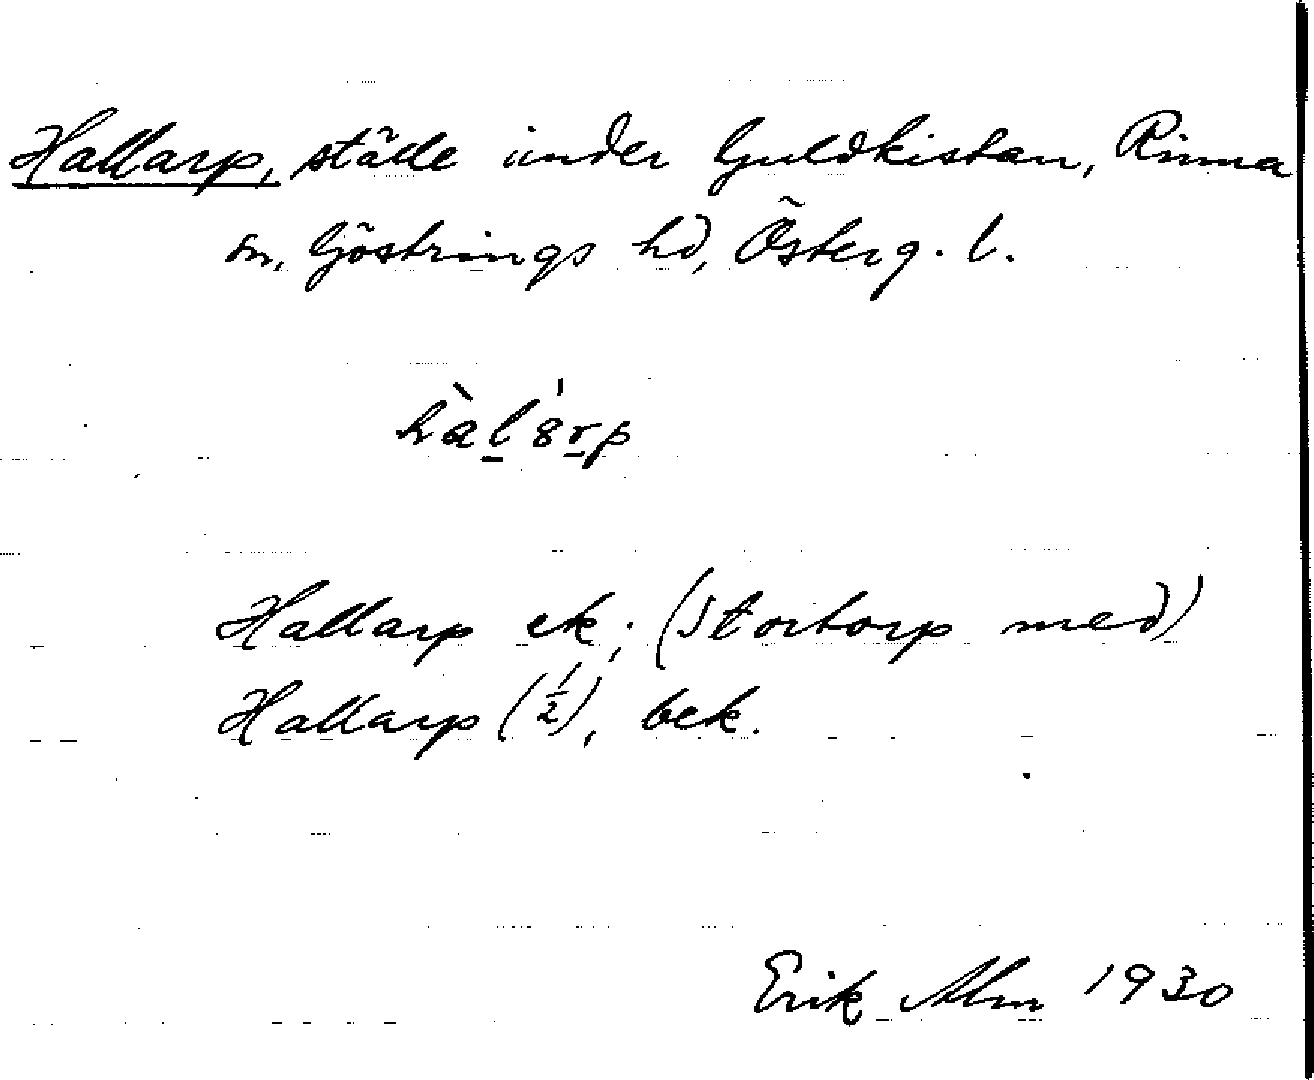 Hallarp, ställe under Guldkistan, Rinna
sn, Göstrings hd, Österg. l.
hàl'ȣrp
Hallarp ek; (Stortorp med)
Hallarp (1/2), bek.
Erik Alm 1930